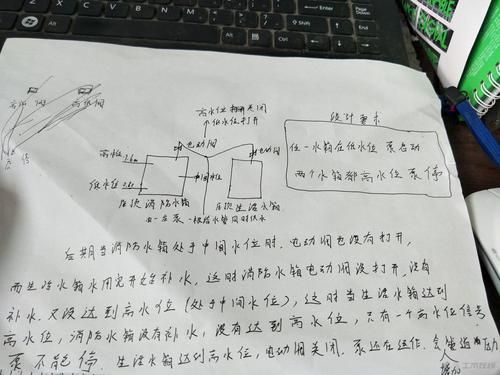 高水位关闭
低水位打开
电动阀
电动阀
设计要求
任一水箱在低水位 泵启动
两个水箱都高水位 泵停
高水位
低水位
中间水位
屋顶消防水箱
屋顶生活水箱
由一台泵一根给水管同时供水
后期当消防水箱处于中间水位时，电动阀也没有打开，
而生活水箱水用完开始补水，这时消防水箱电动阀没打开，没有
补水，又没达到高水位（处于中间水位），这时当生活水箱达到
高水位，消防水箱没有补水，没有达到高水位，只有一个高水位信号
泵不能停 生活水箱达到高水位，电动阀关闭，泵还在运作，会造成 压力
增加